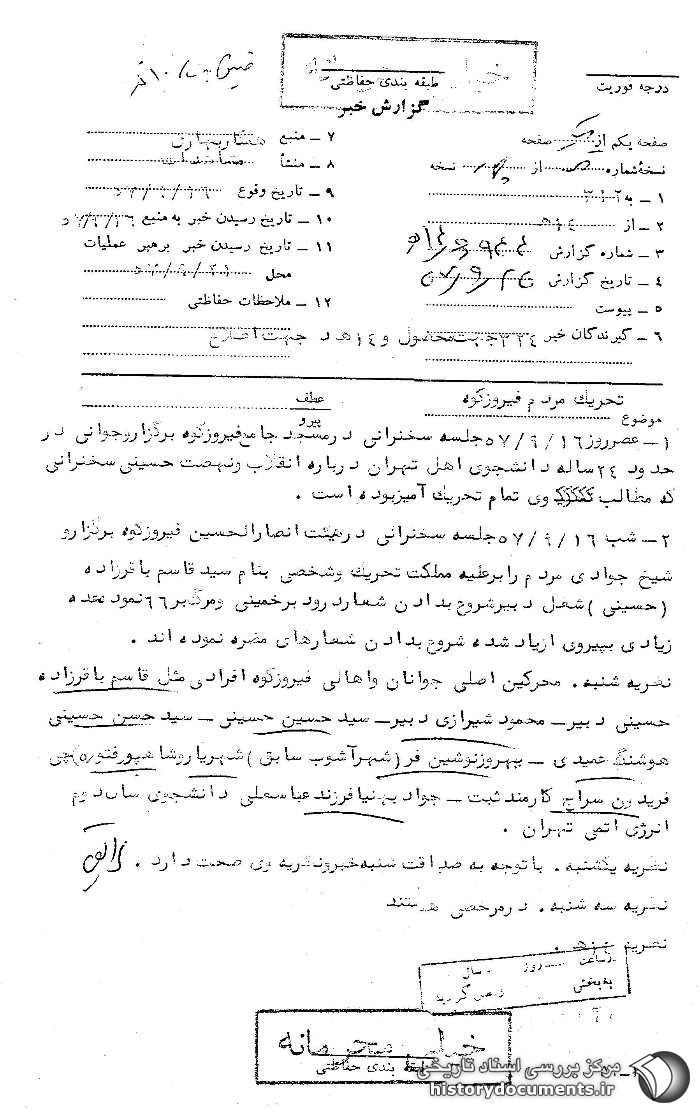 طبقه بندی حفاظتی
درجه فوریت
گزارش خبر
صفحه یکم از صفحه
نسخهٔ شماره از نسخه
۱ - به ۳۱۲
۲ - از
۳ - شماره گزارش
۴ - تاریخ گزارش
۵ - پیوست
۶ - گیرندگان خبر ۳۳۴ جهت محصول و ۱۴هد جهت اطلاع
۷ - منبع
۸ - منشأ
۹ - تاریخ وقوع
۱۰ - تاریخ رسیدن خبر به منبع
۱۱ - تاریخ رسیدن خبر برهبر عملیات
محل
۱۲ - ملاحظات حفاظتی
موضوع تحریک مردم فیروزکوه
عطف
پیرو
۱- عصر روز ۵۷/۹/۱۶ جلسه سخنرانی در مسجد جامع فیروزکوه برگزار وجوانی در
حدود ۲۴ ساله دانشجوی اهل تهران درباره انقلاب ونهضت حسینی سخنرانی
که مطالب وی تمام تحریک آمیز بوده است .
۲- شب ۵۷/۹/۱۶ جلسه سخنرانی در هیئت انصارالحسین فیروزکوه برگزار و
شیخ جوادی مردم را برعلیه مملکت تحریک وشخصی بنام سید قاسم باقرزاده
(حسینی) شغل دبیر شروع بدادن شعار درود برخمینی ومرگ بر ۶۶ نموده عده
زیادی بپیروی از یاد شده شروع بدادن شعارهای مضره نموده اند .
نظریه شنبه . محرکین اصلی جوانان واهالی فیروزکوه افرادی مثل قاسم باقرزاده
حسینی دبیر - محمود شیرازی دبیر - سید حسین حسینی - سید حسن حسینی
هوشنگ عمیدی - بهروز نوشین فر (شهرآشوب سابق) شهریار وشاهپور
فریدون سراج کارمند ثبت - جواد بهنیا فرزند عباسعلی دانشجوی سال دوم
انرژی اتمی تهران .
نظریه یکشنبه . با توجه به صداقت شنبه خبر ونظریه وی صحت دارد .
نظریه سه شنبه . در مرخصی هستند
نظریه
ساعت روز سال
به بخش
خیلی محرمانه
طبقه بندی حفاظتی
مرکز بررسی اسناد تاریخی
historydocuments.ir